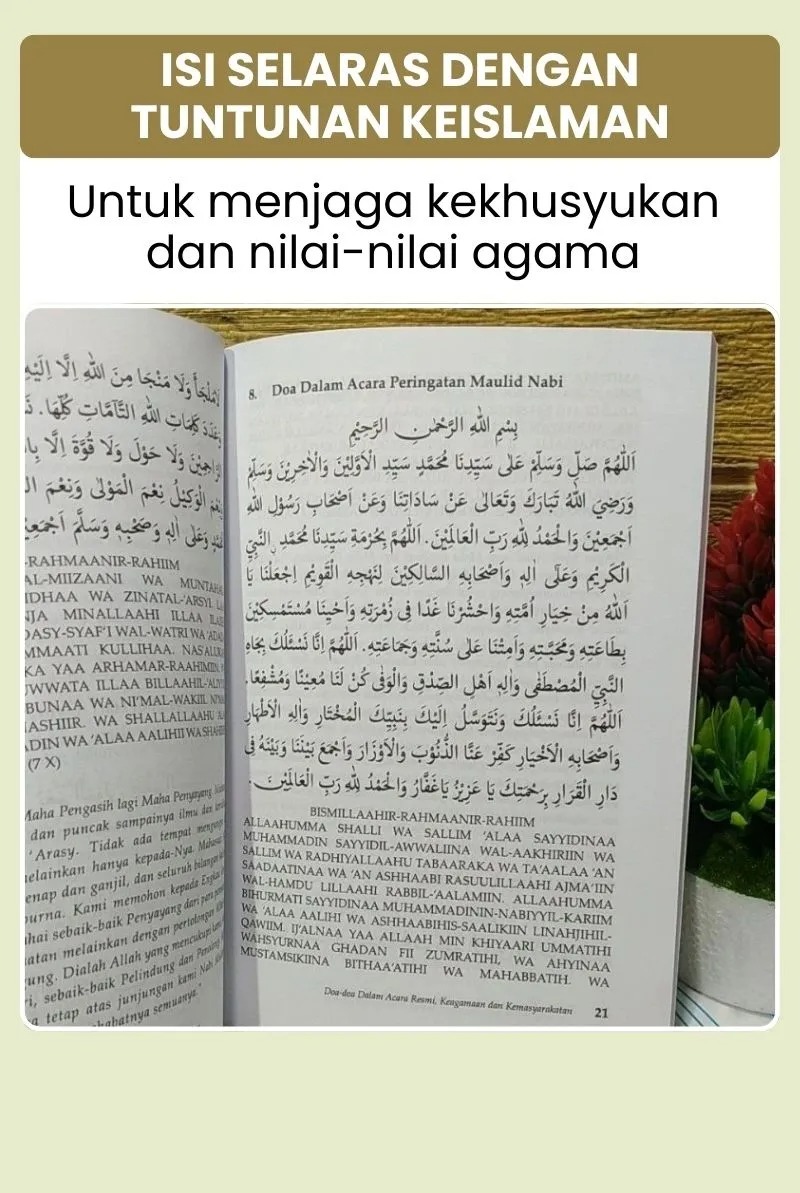 ISI SELARAS DENGAN
TUNTUNAN KEISLAMAN
Untuk menjaga kekhusyukan
dan nilai-nilai agama
وَلَا مَنْجَا مِنَ اللّٰهِ اِلَّا اِلَيْهِ
كَلِمَاتِ اللّٰهِ التَّآمَّاتِ كُلِّهَا.
وَلَا حَوْلَ وَلَا قُوَّةَ اِلَّا
الْوَكِيْلُ نِعْمَ الْمَوْلٰى وَنِعْمَ
وَعَلٰى اٰلِهٖ وَصَحْبِهٖ وَسَلَّمَ
-RAHMAANIR-RAHIIM
AL-MIIZAANI WA
WA ZINATAL-'ARSYI
MINALLAAHI ILLAA
ASY-SYAF'I WAL-WATRI WA
KULLIHAA.
KA YAA ARHAMAR-RAAHIMIIN.
ILLAA BILLAAHIL-
WA NI'MAL-WAKIIL
WA SHALLALLAAHU
WA 'ALAA AALIHII WA
(7 X)
Maha Pengasih lagi Maha Penyayang
dan puncak sampainya ilmu dan
'Arasy. Tidak ada tempat
melainkan hanya kepada-Nya.
genap dan ganjil, dan seluruh bilangan
Kami memohon kepada
sebaik-baik Penyayang dari
melainkan dengan pertolongan
Dialah Allah yang mencukupi
sebaik-baik Pelindung dan
tetap atas junjungan kami Nabi
semuanya."
8. Doa Dalam Acara Peringatan Maulid Nabi
بِسْمِ اللّٰهِ الرَّحْمٰنِ الرَّحِيْمِ
اَللّٰهُمَّ صَلِّ وَسَلِّمْ عَلٰى سَيِّدِنَا مُحَمَّدٍ سَيِّدِ الْاَوَّلِيْنَ وَالْاٰخِرِيْنَ وَسَلِّمْ
وَرَضِيَ اللّٰهُ تَبَارَكَ وَتَعَالٰى عَنْ سَادَاتِنَا وَعَنْ اَصْحَابِ رَسُوْلِ اللّٰهِ
اَجْمَعِيْنَ وَالْحَمْدُ لِلّٰهِ رَبِّ الْعَالَمِيْنَ. اَللّٰهُمَّ بِحُرْمَةِ سَيِّدِنَا مُحَمَّدٍ النَّبِيِّ
الْكَرِيْمِ وَعَلٰى اٰلِهٖ وَاَصْحَابِهِ السَّالِكِيْنَ لِنَهْجِهِ الْقَوِيْمِ اِجْعَلْنَا يَا
اَللّٰهُ مِنْ خِيَارِ اُمَّتِهٖ وَاحْشُرْنَا غَدًا فِى زُمْرَتِهٖ وَاَحْيِنَا مُسْتَمْسِكِيْنَ
بِطَاعَتِهٖ وَمَحَبَّتِهٖ وَاَمِتْنَا عَلٰى سُنَّتِهٖ وَجَمَاعَتِهٖ. اَللّٰهُمَّ اِنَّا نَسْئَلُكَ بِجَاهِ
النَّبِيِّ الْمُصْطَفٰى وَاٰلِهٖ اَهْلِ الصِّدْقِ وَالْوَفٰى كُنْ لَنَا مُعِيْنًا وَمُشْفِعًا.
اَللّٰهُمَّ اِنَّا نَسْئَلُكَ وَنَتَوَسَّلُ اِلَيْكَ بِنَبِيِّكَ الْمُخْتَارِ وَاٰلِهِ الْاَطْهَارِ
وَاَصْحَابِهِ الْاَخْيَارِ كَفِّرْ عَنَّا الذُّنُوْبَ وَالْاَوْزَارَ وَاجْمَعْ بَيْنَنَا وَبَيْنَهُ فِى
دَارِ الْقَرَارِ بِرَحْمَتِكَ يَا عَزِيْزُ يَاغَفَّارُ وَالْحَمْدُ لِلّٰهِ رَبِّ الْعَالَمِيْنَ.
BISMILLAAHIR-RAHMAANIR-RAHIIM
ALLAAHUMMA SHALLI WA SALLIM 'ALAA SAYYIDINAA
MUHAMMADIN SAYYIDIL-AWWALIINA WAL-AAKHIRIIN WA
SALLIM WA RADHIYALLAAHU TABAARAKA WA TA'AALAA 'AN
SAADAATINAA WA 'AN ASHHAABI RASUULILLAAHI AJMA'IIN
WAL-HAMDU LILLAAHI RABBIL-'AALAMIIN. ALLAAHUMMA
BIHURMATI SAYYIDINAA MUHAMMADININ-NABIYYIL-KARIIM
WA 'ALAA AALIHI WA ASHHAABIHIS-SAALIKIIN LINAHJIHIL-
QAWIIM. IJ'ALNAA YAA ALLAAH MIN KHIYAARI UMMATIHI
WAHSYURNAA GHADAN FII ZUMRATIHI, WA AHYINAA
MUSTAMSIKIINA BITHAA'ATIHI WA MAHABBATIH. WA
Doa-doa Dalam Acara Resmi, Keagamaan dan Kemasyarakatan 21